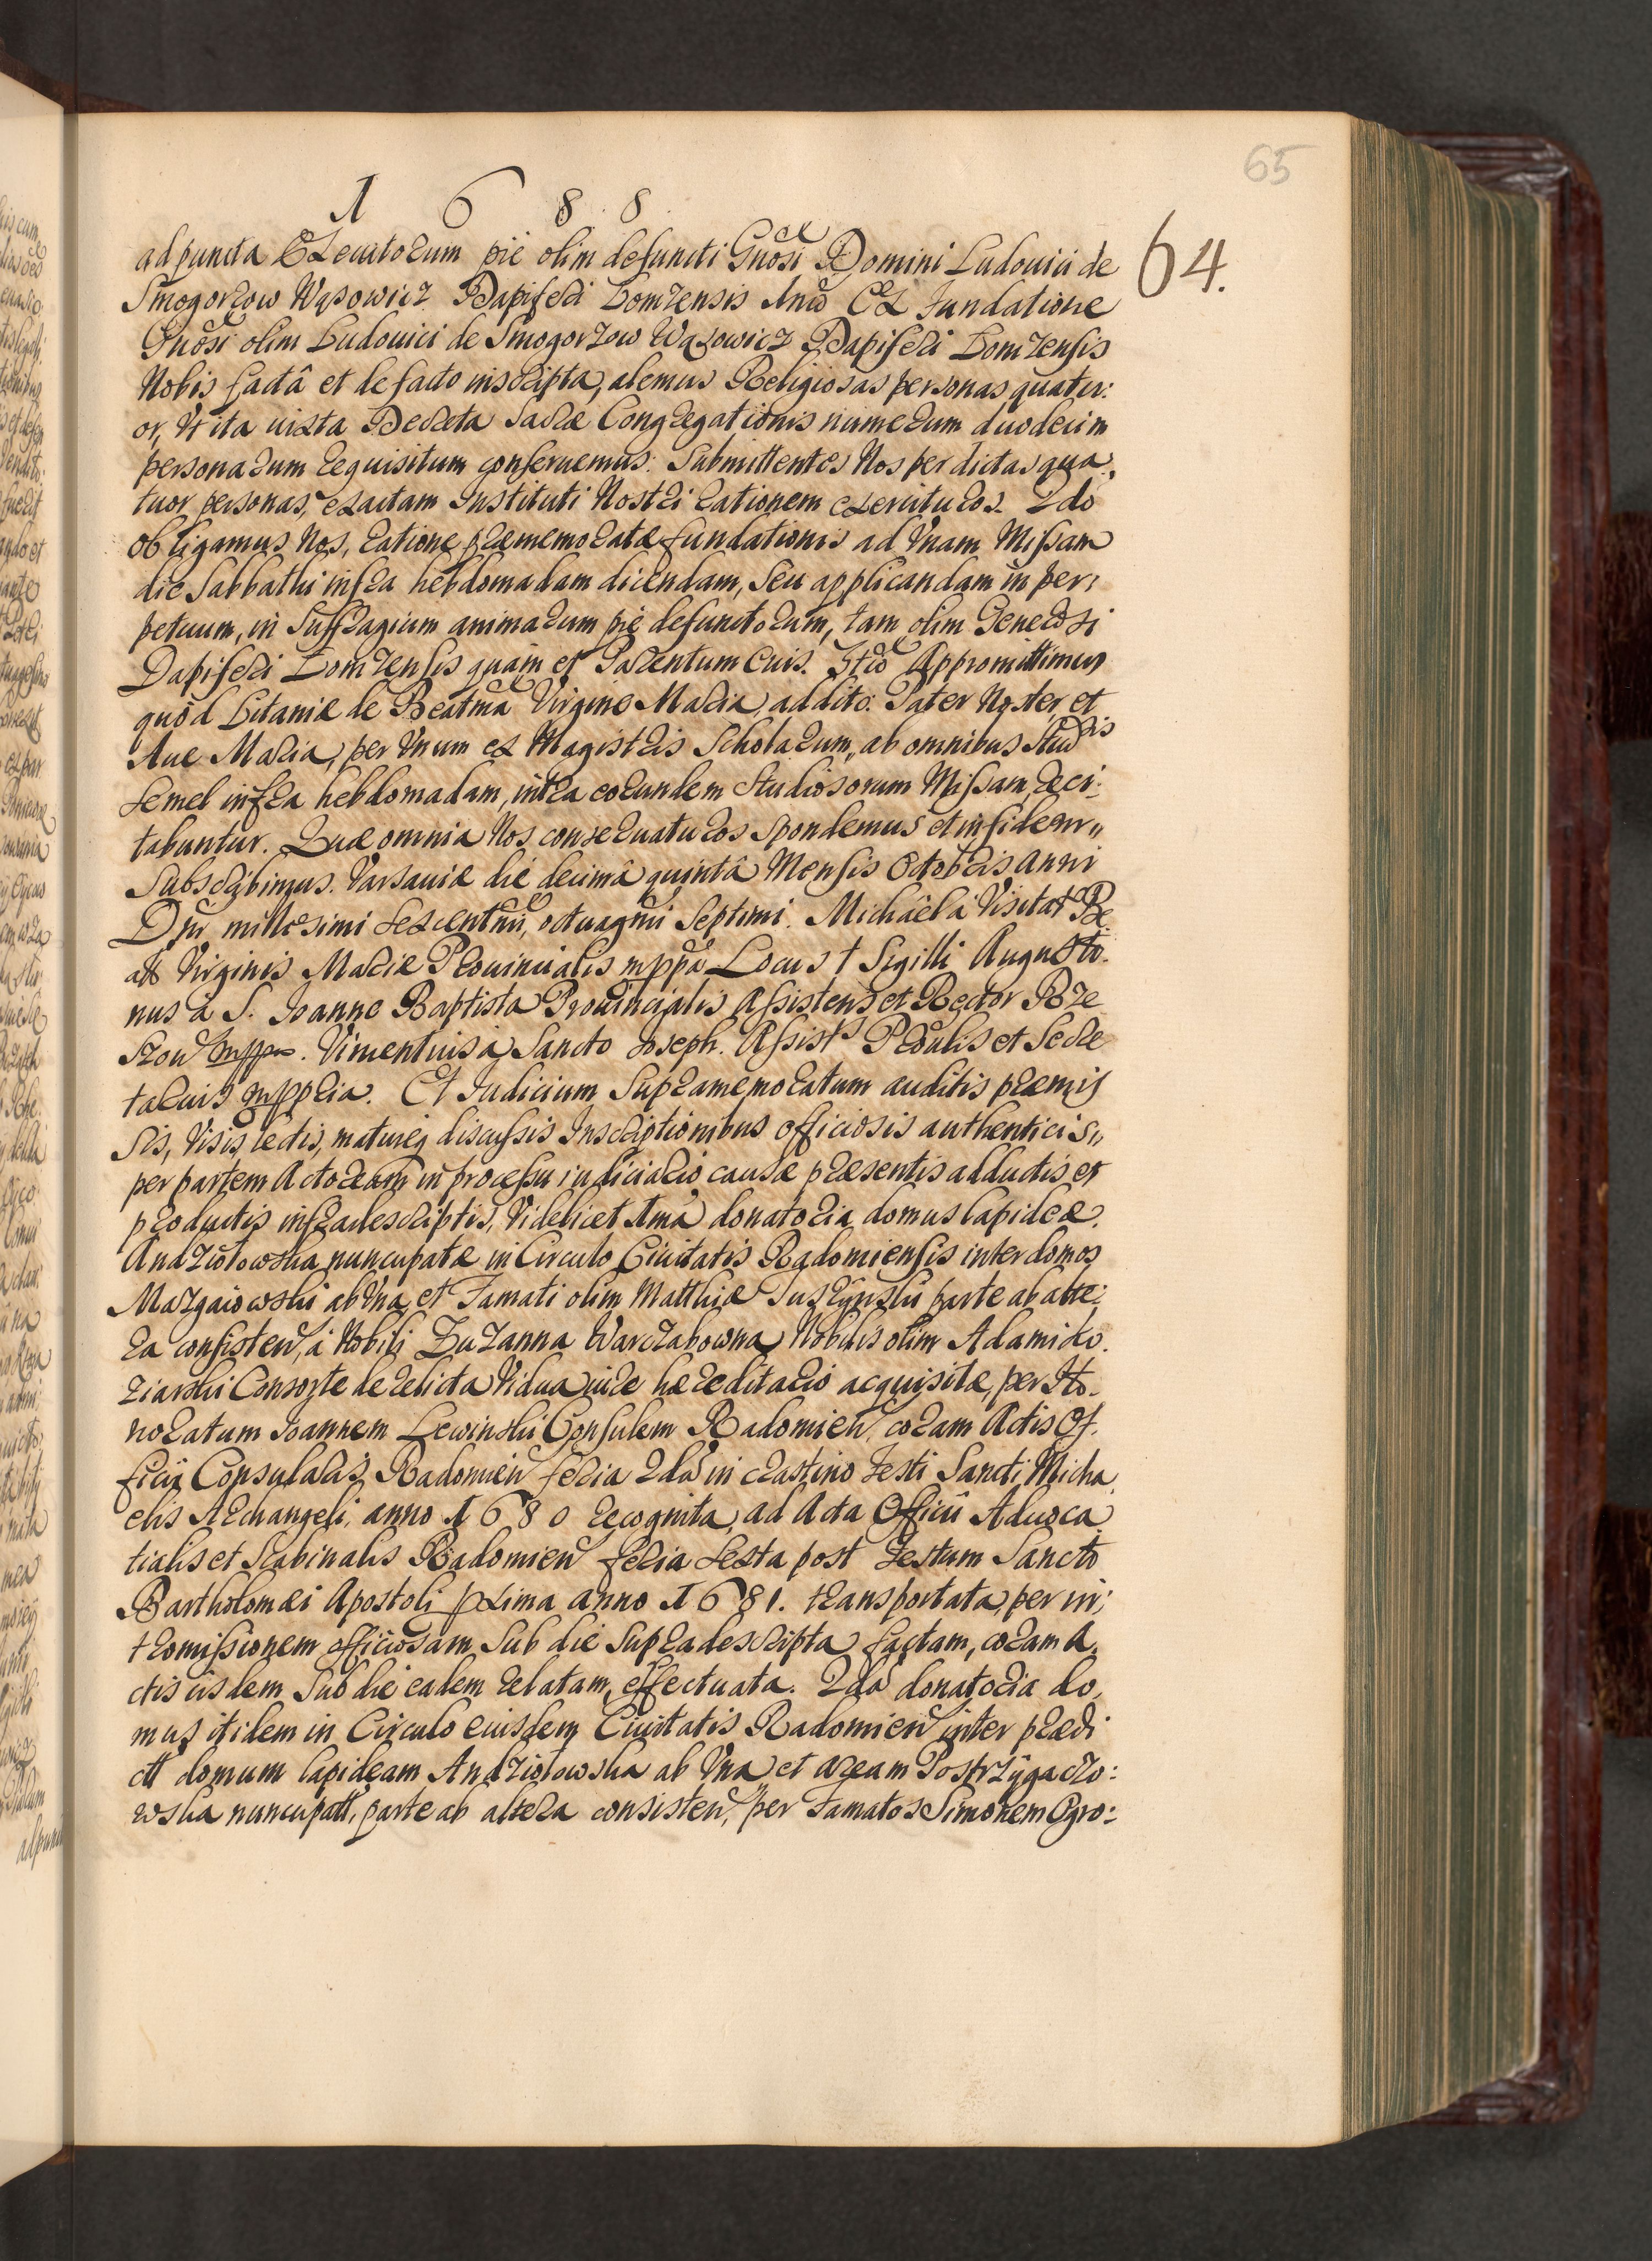 65
1688
64.
ad puncta Executorum pie olim defuncti Gnosi Domini Ludovici de
Smogorzow Wąsowicz Dapiferi Lomzensis Imo Ex Fundatione
Gnosi olim Ludovici de Smogorzow Wąsowicz Dapiferi Lomzensis
Nobis factâ et de facto inscripta, alemus Religiosas personas quatu:
or, Vt ita iuxta Decreta Sacræ Congregationis numerum duodecim
personarum requisitum conseruemus: Submittentes Nos per dictas qua:
tuor personas, exactam Instituti Nostri rationem exercituros. 2do
obligamus Nos, ratione præmemoratæ fundationis ad Vnam Missam
die Sabbathi infra hebdomadam dicendam, seu applicandam in per:
petuum, in Suffragium animarum pie defunctorum, tam olim Generosi
Dapiferi Lomzensis quam et Parentum Euis. 3tio Appromittimus
quòd Litaniæ de Beatma Virgine Maria, addito Pater Noster et
Aue Maria, per Vnum ex Magistris Scholarum, ab omnibus Studsis
semel infra hebdomadam, intra eorundem Studiosorum Missam, reci:
tabuntur. Quæ omnia Nos conseruaturos spondemus et in fidem
Subscribimus. Varsauiæ die decimâ quintâ Mensis Octobris Anni
Dñi millesimi sexcentmi, octuagmi septimi. Michael à Visitat Be
atæ Virginis Mariæ Prouincialis mppa Locus † Sigilli Augusto:
nus à S. Joanne Baptista Prouincialis Assistens et Rector Rze
szou mppa. Vincentius à Sancto Joseph. Assists Proulis et Secre
tarius mppria. Et Iudicium Supramemoratum auditis præmis
sis, Visis, lectis, matureq discussis Inscriptionibus officiosis authenticis,
per partem Actoream in processu iudiciario causæ præsentis adductis et
productis infradescriptis, Videlicet Ima donatoria domus lapideæ,
Andziolowska nuncupatæ in Circulo Ciuitatis Radomiensis inter domos
Mazgaiowski ab Vna, et Famati olim Matthiæ Suszynski parte ab alte:
ra consisten, à Nobili Zuzanna Warczabowna Nobilis olim Adami Ko
ziarski Consorte derelicta Vidua iure hæreditario acquisitæ, per Ho
noratum Joannem Lewinski Consulem Radomien, coram Actis Of
ficij Consularis Radomien feria 2da in crastino Festi Sancti Micha
elis Archangeli, anno 1680 recognita, ad Acta Officii Aduoca
tialis et Scabinalis Radomien feria sexta post Festum Sancto
Bartholomæi Apostoli pxima anno 1681. transportata, per in:
tromissionem officiosam sub die supradescripta factam, coram A
ctis iisdem sub die eadem relatam, effectuata. 2da donatoria do
mus itidem in Circulo euisdem Ciuitatis Radomien inter prædi
ctt domum lapideam Andziolowska ab Vna et aream Postrzygaczo:
wska nuncupatt, parte ab altera consisten, per Famatos Simonem Ogro: